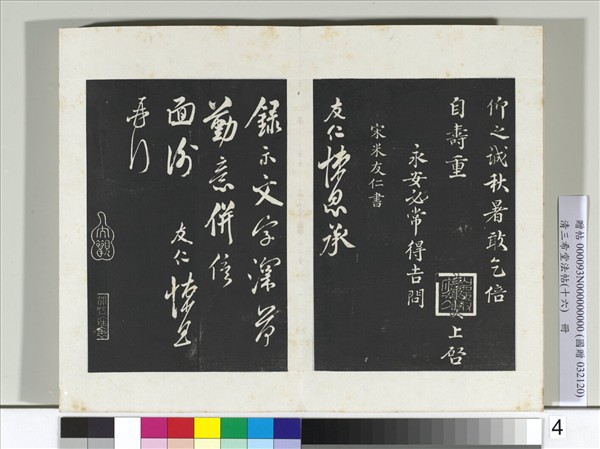 仰之誠秋暑敢乞倍
自壽重
永安必常得吉問
上啓
宋米友仁書
友仁悚息承
錄示文字深荷
勤意併俟
面謝
友仁悚息
再行
贈帖 000093N000000000 (國贈 032120)
清三希堂法帖(十六) 冊
4